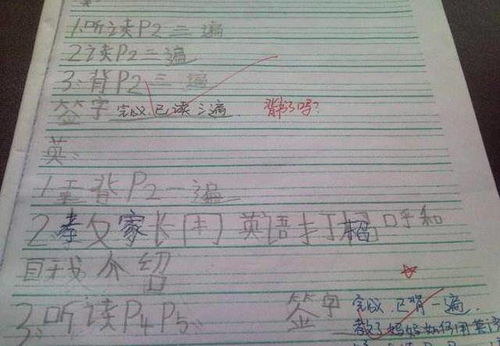 英:
1.听读P2三遍
2读P2三遍
3.背P2三遍
签字 完成 已读三遍 背了吗?
英:
1.重背P2一遍
2.孝文家长用英语打招呼和
自我介绍
3.听读P4P5 签字 完成.已背一遍.
教了妈妈如何用英语